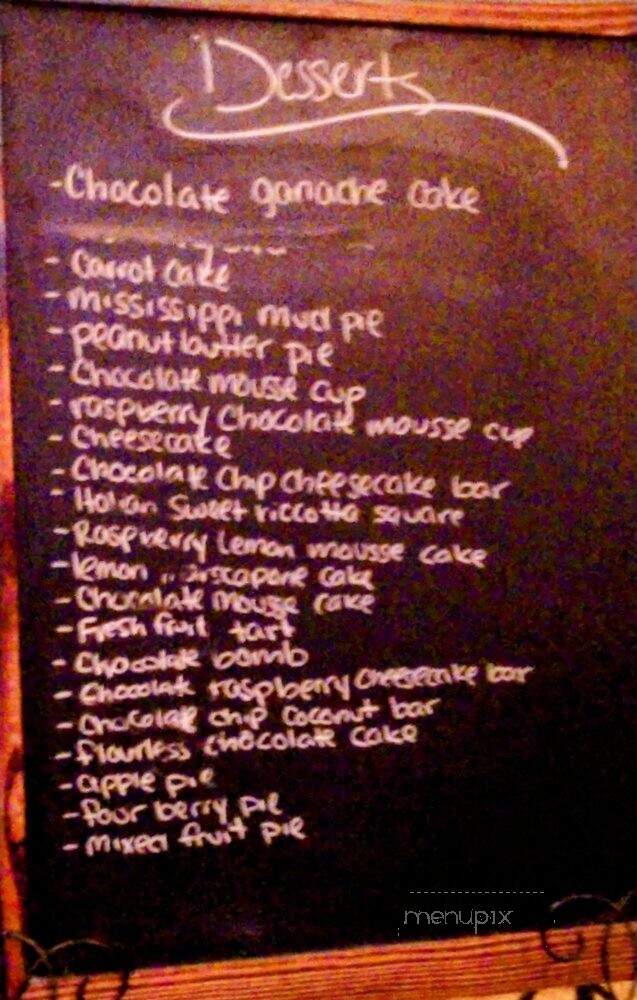 Desserts
- Chocolate ganache cake
- Carrot cake
- mississippi mud pie
- peanut butter pie
- Chocolate mouse cup
- raspberry Chocolate mousse cup
- Cheesecake
- Chocolate Chip cheesecake bar
- Italian Sweet riccotta square
- Raspberry Lemon mousse cake
- lemon marscapone cake
- Chocolate mouse cake
- Fresh fruit tart
- Chocolate bomb
- Chocolate raspberry cheesecake bar
- Chocolate chip coconut bar
- flourless chocolate cake
- apple pie
- four berry pie
- mixed fruit pie
menupix